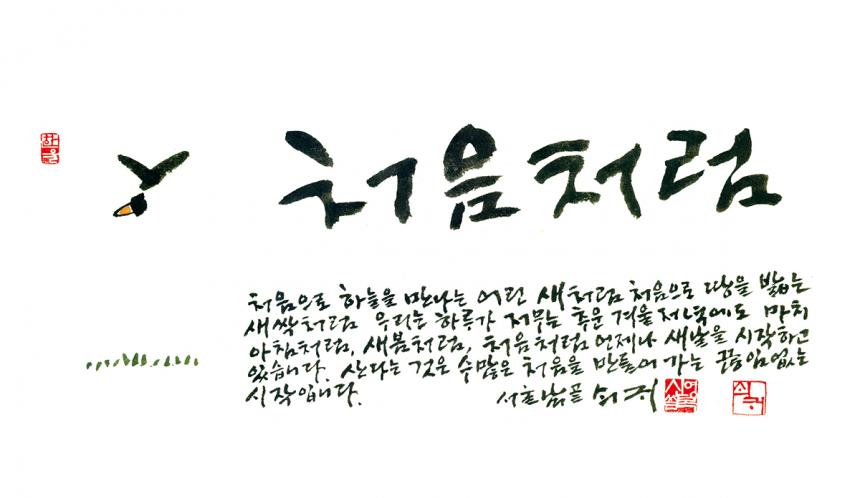 처음처럼
처음으로 하늘을 만나는 어린 새처럼 처음으로 땅을 밟는
새싹처럼 우리는 하루가 저무는 추운 겨울 저녁에도 마치
아침처럼, 새봄처럼, 처음처럼 언제나 새날을 시작하고
있습니다. 산다는 것은 수많은 처음을 만들어 가는 끊임없는
시작입니다. 쇠귀
쇠귀